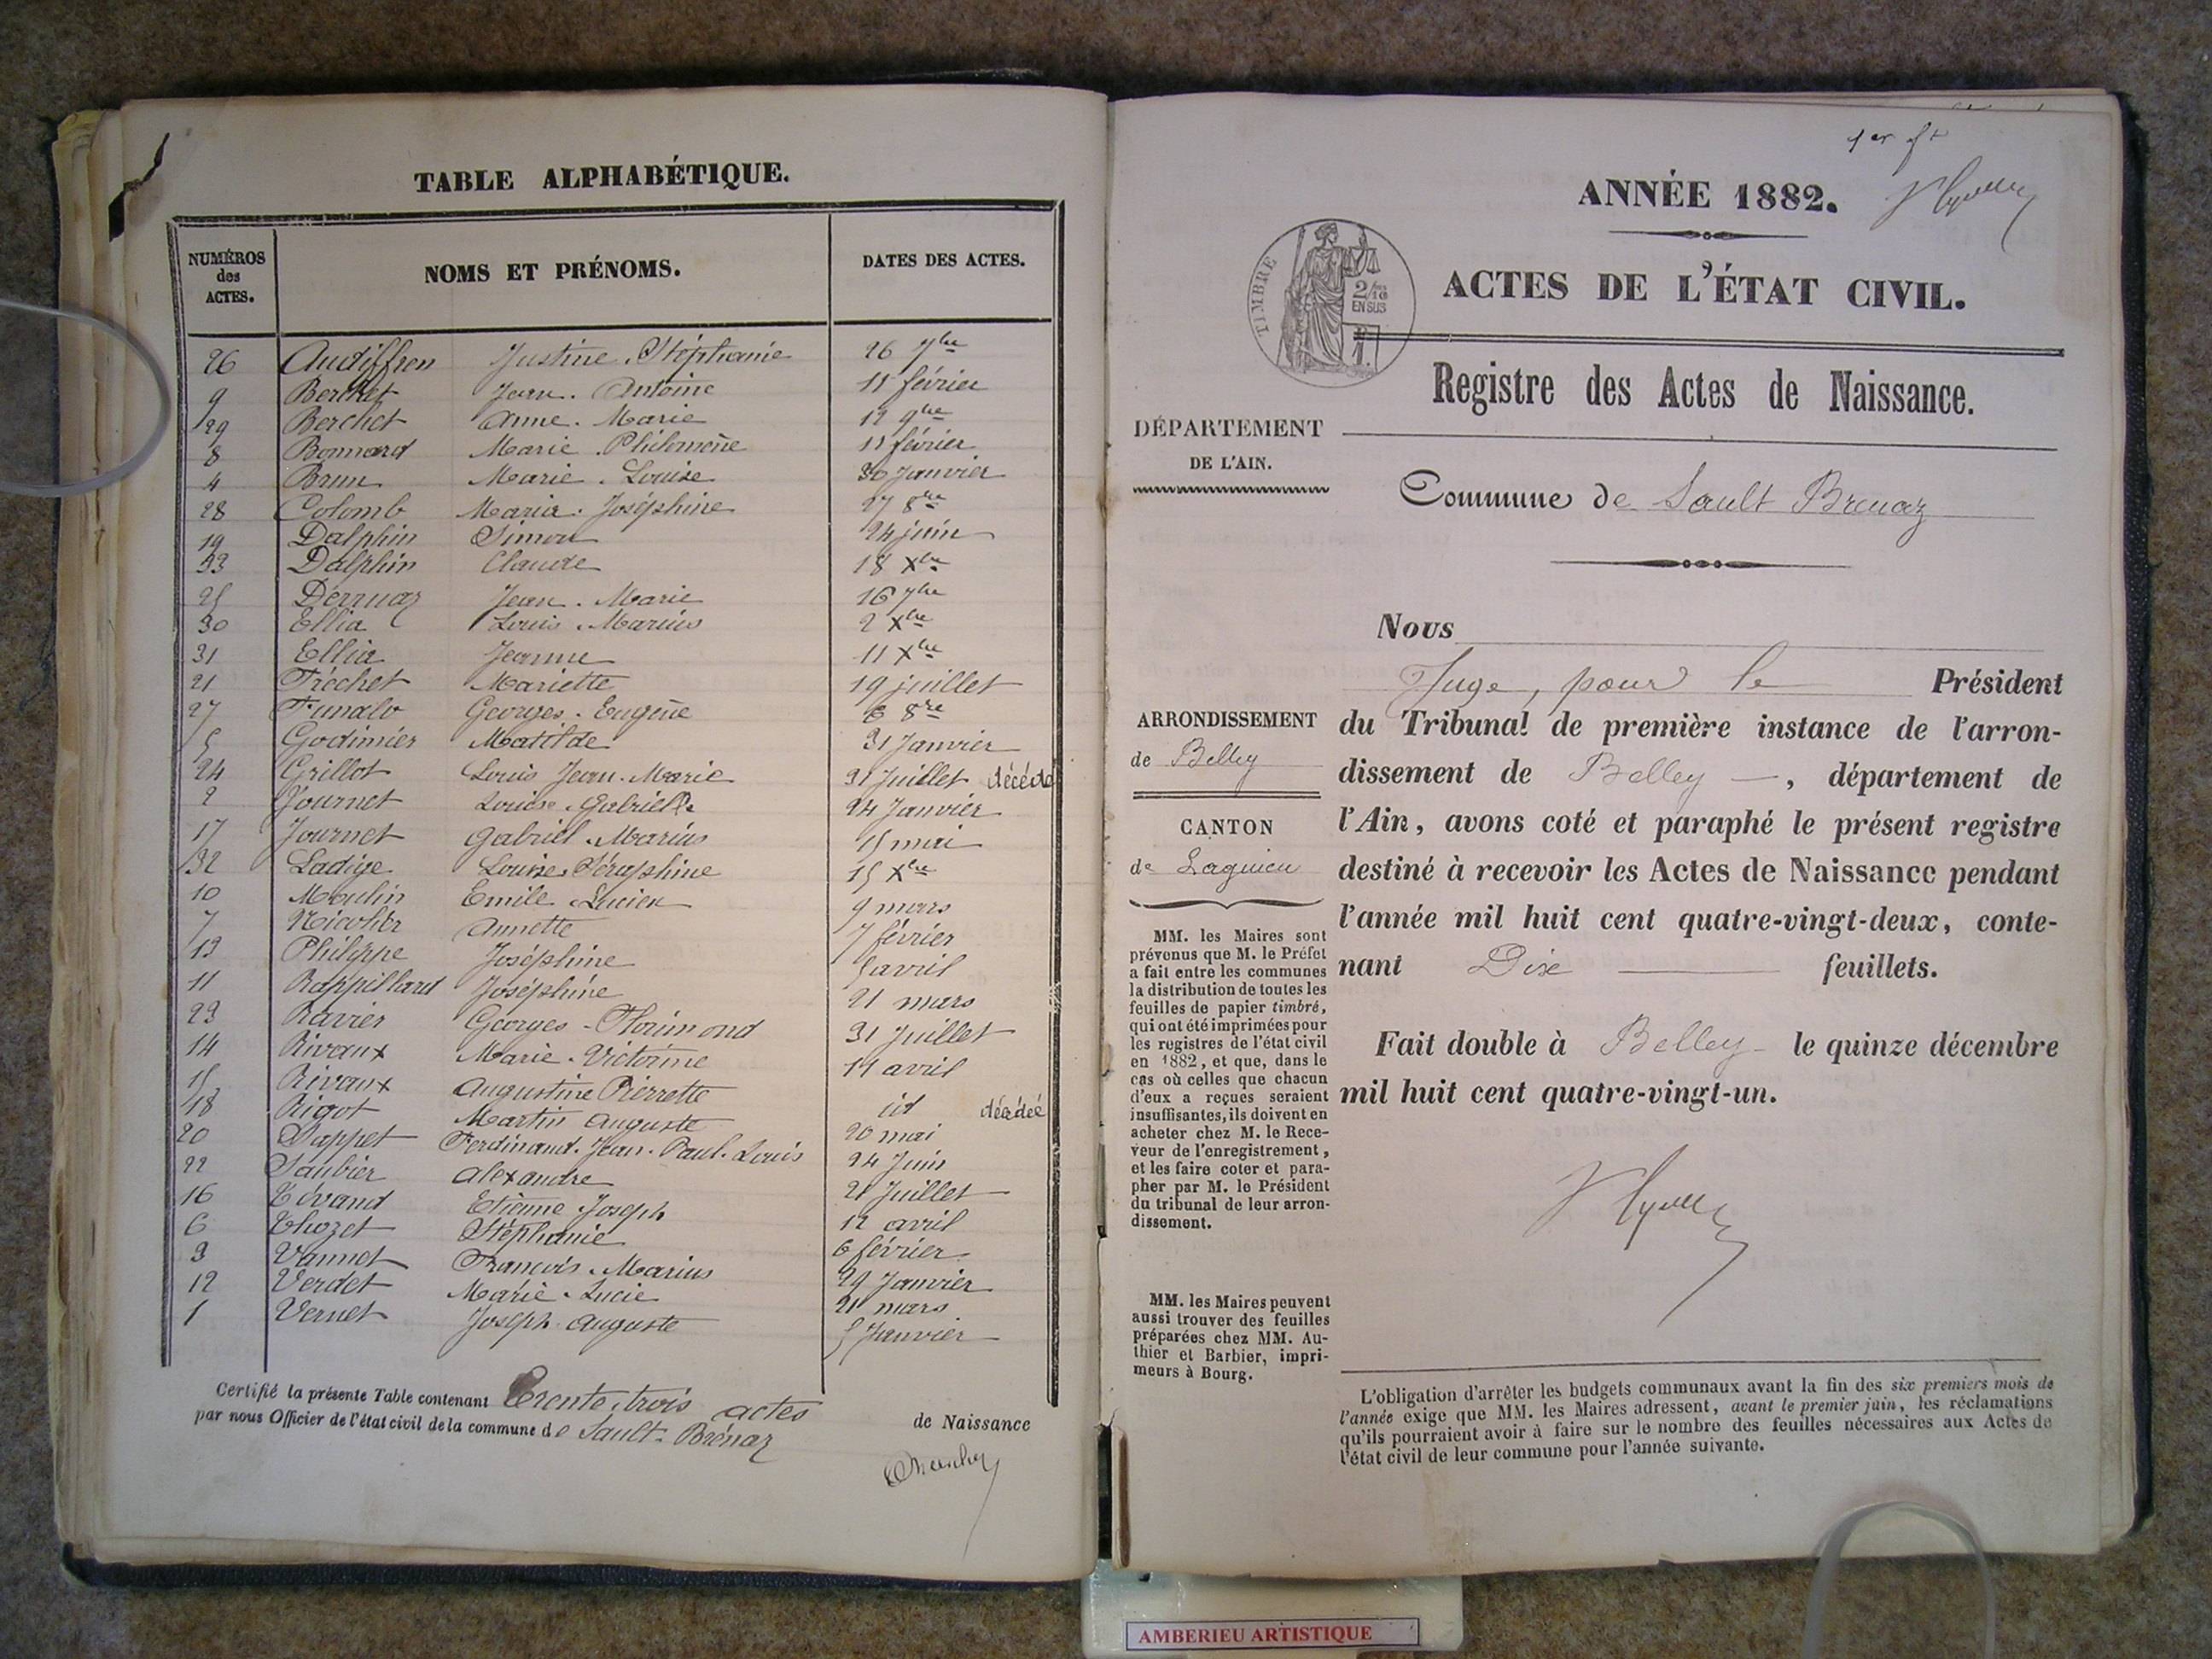 TABLE ALPHABÉTIQUE.
NUMÉROS des ACTES. NOMS ET PRÉNOMS. DATES DES ACTES.
26 Audiffren Justine Stéphanie 26 7bre
9 Berchet Jean. Antoine 11 février
29 Berchet Anne. Marie 12 9bre
8 Bonnard Marie Philomène 11 février
4 Brun Marie. Louise 30 Janvier
28 Colomb Maria. Joséphine 27 8bre
19 Dalphin Simon 24 juin
33 Dalphin Claude 18 Xbre
25 Derruaz Jean. Marie 16 7bre
30 Ellia Louis. Marius 2 Xbre
31 Ellia Jeanne 11 Xbre
21 Fréchet Mariette 19 juillet
27 Georges. Eugène 6 8re
5 Godimier Matilde 31 Janvier
24 Grillot Louis Jean. Marie 31 Juillet décédé
2 Journet Louise. Gabrielle 24 Janvier
17 Journet Gabriel. Marius 15 mai
32 Ladige Louise Séraphine 15 Xbre
10 Moulin Emile. Lucien 9 mars
7 Nicolier Annette 7 février
13 Philippe Joséphine 5 avril
11 Rappillard Joséphine 21 mars
23 Ravier Georges - Florimond 31 Juillet
14 Rivaux Marie. Victorine 11 avril
15 Rivaux Augustine Pierrette id décédée
18 Rigot Martin Auguste 20 mai
20 Sappet Ferdinand. Jean. Paul. Louis 24 Juin
22 Saubier Alexandre 21 Juillet
16 Tévand Etienne Joseph 12 avril
6 Thozet Stéphanie 6 février
3 Vannet François. Marius 29 Janvier
12 Verdet Marie. Lucie 21 mars
1 Vernet Joseph Auguste 5 Janvier
Certifié la présente Table contenant Trente, trois actes de Naissance
par nous Officier de l'état civil de la commune de Sault-Brénaz
1er ft
ANNÉE 1882.
TIMBRE
2/10 EN SUS
ACTES DE L'ÉTAT CIVIL.
Registre des Actes de Naissance.
DÉPARTEMENT
DE L'AIN.
Commune de Sault Brenaz
Nous
Juge, pour le Président
ARRONDISSEMENT
de Belley
CANTON
de Lagnieu
du Tribunal de première instance de l'arron-
dissement de Belley —, département de
l'Ain, avons coté et paraphé le présent registre
destiné à recevoir les Actes de Naissance pendant
l'année mil huit cent quatre-vingt-deux, conte-
nant Dix feuillets.
Fait double à Belley le quinze décembre
mil huit cent quatre-vingt-un.
MM. les Maires sont
prévenus que M. le Préfet
a fait entre les communes
la distribution de toutes les
feuilles de papier timbré,
qui ont été imprimées pour
les registres de l'état civil
en 1882, et que, dans le
cas où celles que chacun
d'eux a reçues seraient
insuffisantes, ils doivent en
acheter chez M. le Rece-
veur de l'enregistrement,
et les faire coter et para-
pher par M. le Président
du tribunal de leur arron-
dissement.
MM. les Maires peuvent
aussi trouver des feuilles
préparées chez MM. Au-
thier et Barbier, impri-
meurs à Bourg.
L'obligation d'arrêter les budgets communaux avant la fin des six premiers mois de
l'année exige que MM. les Maires adressent, avant le premier juin, les réclamations
qu'ils pourraient avoir à faire sur le nombre des feuilles nécessaires aux Actes de
l'état civil de leur commune pour l'année suivante.
AMBERIEU ARTISTIQUE